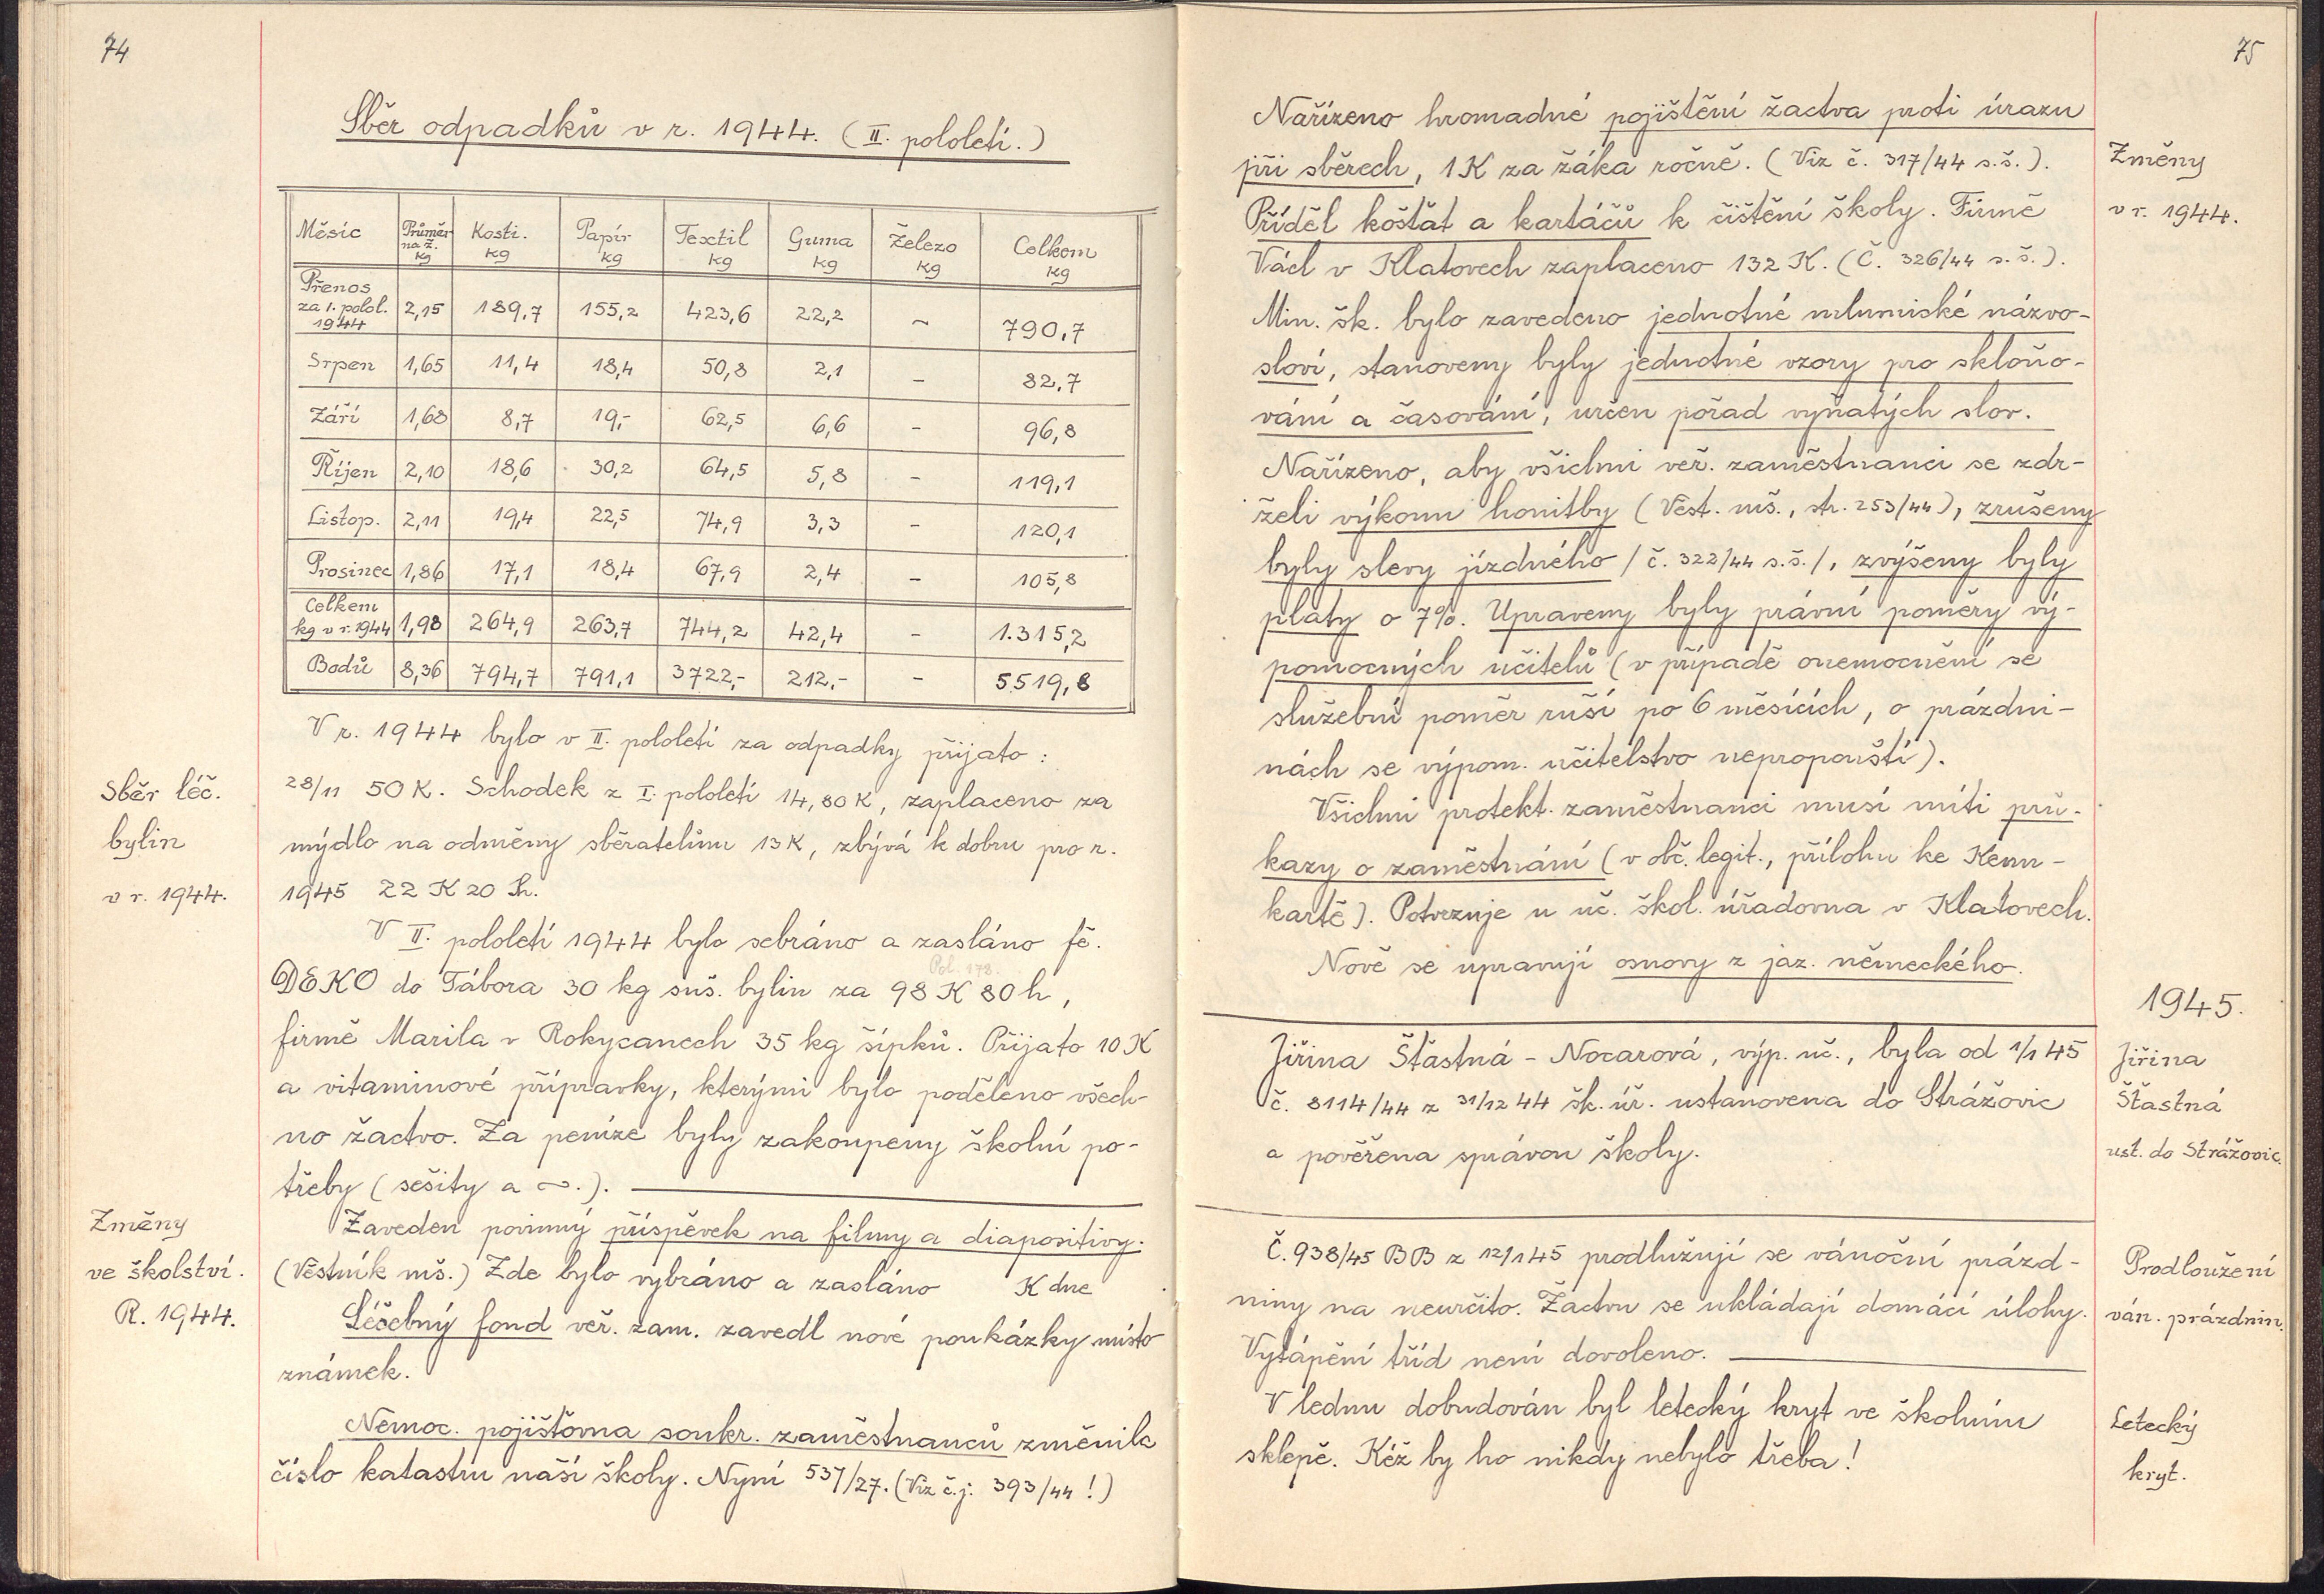 74
Sběr odpadků v r. 1944. (II. pololetí.)
Měsíc | Průměr na ž. kg | Kosti. kg | Papír kg | Textil kg | Guma kg | Železo kg | Celkem kg
Přenos za I. polol. 1944 | 2,15 | 189,7 | 155,2 | 423,6 | 22,2 | – | 790,7
Srpen | 1,65 | 11,4 | 18,4 | 50,8 | 2,1 | – | 82,7
Září | 1,68 | 8,7 | 19,- | 62,5 | 6,6 | – | 96,8
Říjen | 2,10 | 18,6 | 30,2 | 64,5 | 5,8 | – | 119,1
Listop. | 2,11 | 19,4 | 22,5 | 74,9 | 3,3 | – | 120,1
Prosinec | 1,86 | 17,1 | 18,4 | 67,9 | 2,4 | – | 105,8
Celkem kg v r. 1944 | 1,98 | 264,9 | 263,7 | 744,2 | 42,4 | – | 1.315,2
Bodů | 8,36 | 794,7 | 791,1 | 3722,- | 212,- | – | 5519,8
V r. 1944 bylo v II. pololetí za odpadky přijato :
28/11 50 K. Schodek z I. pololetí 14,80 K, zaplaceno za
mýdlo na odměny sběratelům 13 K, zbývá k dobru pro r.
1945 22 K 20 h.
Sběr léč.
bylin
v r. 1944.
V II. pololetí 1944 bylo sebráno a zasláno fě.
Pol. 178.
DEKO do Tábora 30 kg suš. bylin za 98 K 80 h,
firmě Marila v Rokycanech 35 kg šípků. Přijato 10 K
a vitaminové přípravky, kterými bylo poděleno všech-
no žactvo. Za peníze byly zakoupeny školní po-
třeby (sešity a ∾.).
Změny
ve školství.
R. 1944.
Zaveden povinný příspěvek na filmy a diapositivy.
(Věstník mš.) Zde bylo vybráno a zasláno K dne .
Léčebný fond veř. zam. zavedl nové poukázky místo
známek.
Nemoc. pojišťovna soukr. zaměstnanců změnila
číslo katastru naší školy. Nyní 537/27. (Viz č.j. 393/44 !)
75
Nařízeno hromadné pojištění žactva proti úrazu
při sběrech, 1 K za žáka ročně. (Viz č. 317/44 s.š.).
Příděl košťat a kartáčů k čištění školy. Firmě
Václ v Klatovech zaplaceno 132 K. (Č. 326/44 s.š.).
Změny
v r. 1944.
Min. šk. bylo zavedeno jednotné mluvnické názvo-
sloví, stanoveny byly jednotné vzory pro skloňo-
vání a časování, určen pořad vyňatých slov.
Nařízeno, aby všichni veř. zaměstnanci se zdr-
želi výkonu honitby (Věst. mš., str. 253/44), zrušeny
byly slevy jízdného / č. 322/44 s.š. /, zvýšeny byly
platy o 7%. Upraveny byly právní poměry vý-
pomocných učitelů (v případě onemocnění se
služební poměr ruší po 6 měsících, o prázdni-
nách se výpom. učitelstvo nepropouští).
Všichni protekt. zaměstnanci musí míti prů-
kazy o zaměstnání (v obč. legit., přílohu ke Kenn-
kartě). Potvrzuje u uč. škol. úřadovna v Klatovech.
Nově se upravují osnovy z jaz. německého.
1945.
Jiřina Šťastná - Nocarová, výp. uč., byla od 1/1 45
č. 8114/44 z 31/12 44 šk. úř. ustanovena do Strážovic
a pověřena správou školy.
Jiřina
Šťastná
ust. do Strážovic.
Č. 938/45 BB z 12/1 45 prodlužují se vánoční prázd-
niny na neurčito. Žactvu se ukládají domácí úlohy.
Vytápění tříd není dovoleno.
Prodloužení
ván. prázdnin.
V lednu dobudován byl letecký kryt ve školním
sklepě. Kéž by ho nikdy nebylo třeba !
Letecký
kryt.